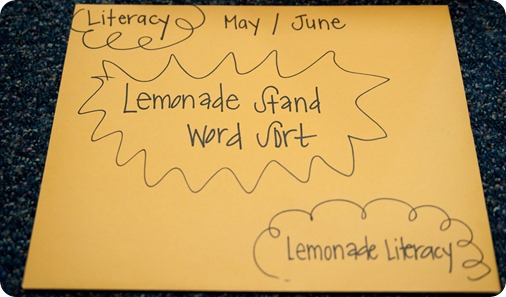 Literacy May / June
Lemonade Stand
Word Sort
Lemonade Literacy